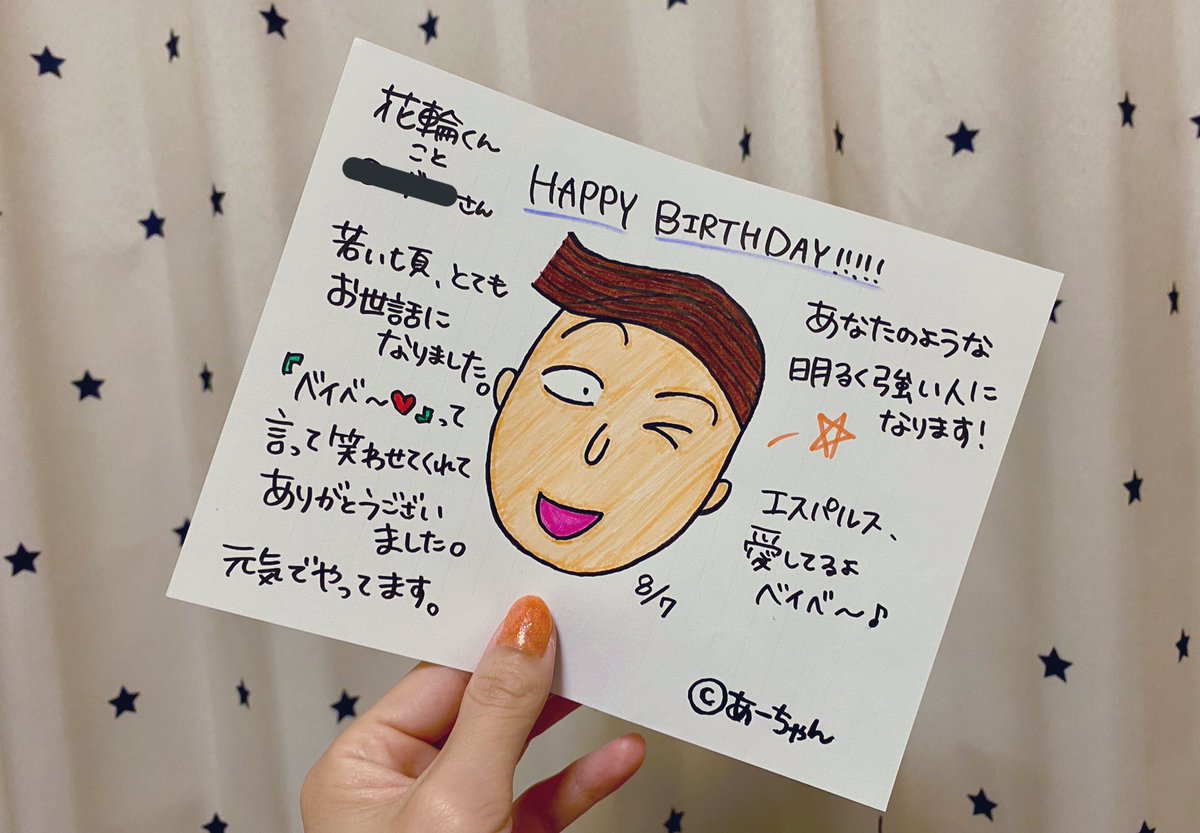 花輪くん
こと
さん
HAPPY BIRTHDAY!!!!!
若い頃、とても
お世話に
なりました。
『ベイベ〜♥』って
言って笑わせてくれて
ありがとうござい
ました。
元気でやってます。
あなたのような
明るく強い人に
なります!
エスパルス、
愛してるよ
ベイベ〜♪
8/7
©あーちゃん